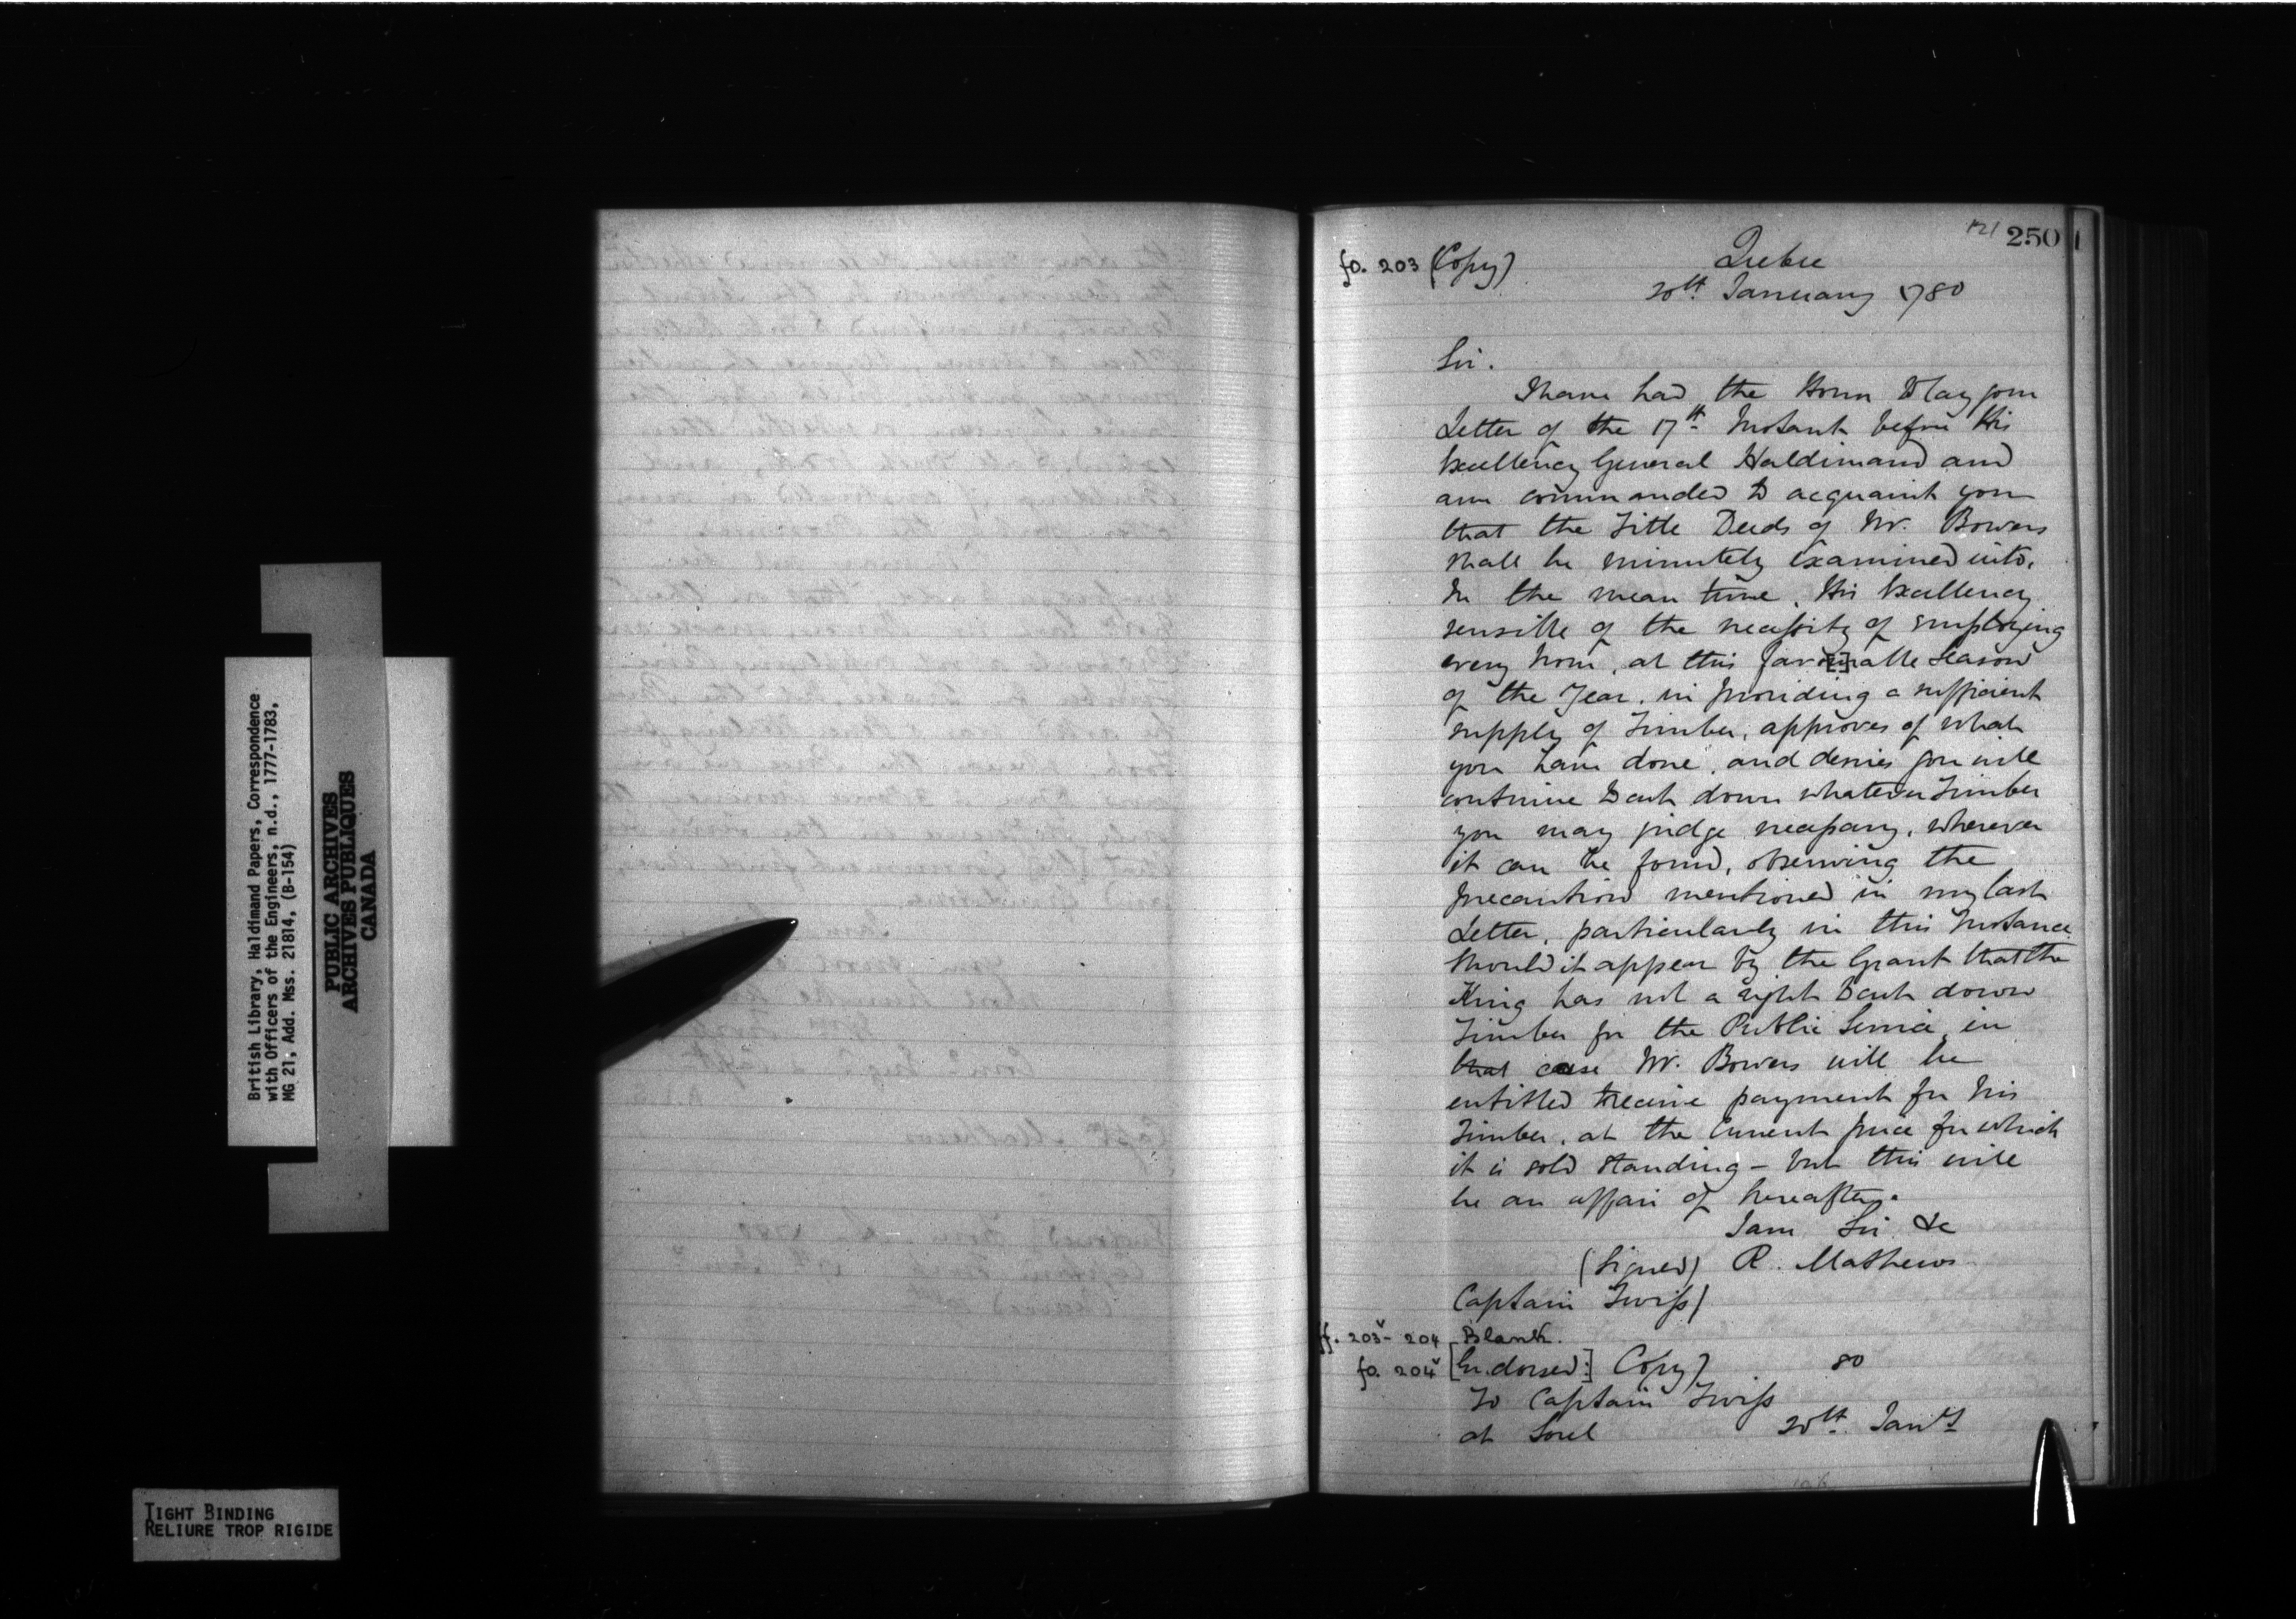 British Library, Haldimand Papers, Correspondence
with Officers of the Engineers, n.d., 1777-1783,
MG 21, Add. Mss. 21814, (B-154)
PUBLIC ARCHIVES
ARCHIVES PUBLIQUES
CANADA
TIGHT BINDING
RELIURE TROP RIGIDE
121 250
fo. 203 (Copy) Quebec
20th January 1780
Sir.
I have had the Honor to lay your
Letter of the 17th Instant before His
Excellency General Haldimand and
am commanded to acquaint you
that the Title Deeds of Mr. Bowers
shall be minutely examined into.
In the mean time, His Excellency
sensible of the necessity of employing
every hour, at this favo[u]rable Season
of the Year, in providing a sufficient
supply of Timber, approves of what
you have done, and desires you will
continue to cut down whatever Timber
you may judge necessary, wherever
it can be found, observing the
precaution mentioned in my last
Letter, particularly in this Instance.
Should it appear by the Grant that the
King has not a right to cut down
Timber for the Public Service, in
that case Mr. Bowers will be
entitled to receive payment for his
Timber, at the Current price for which
it is sold standing - but this will
be an affair of hereafter.
I am Sir &c
(Signed) R. Mathews
Captain Twiss)
ff. 203v - 204 Blank.
fo. 204v [Endorsed:] Copy) 80
To Captain Twiss
at Sorel 20th Jany